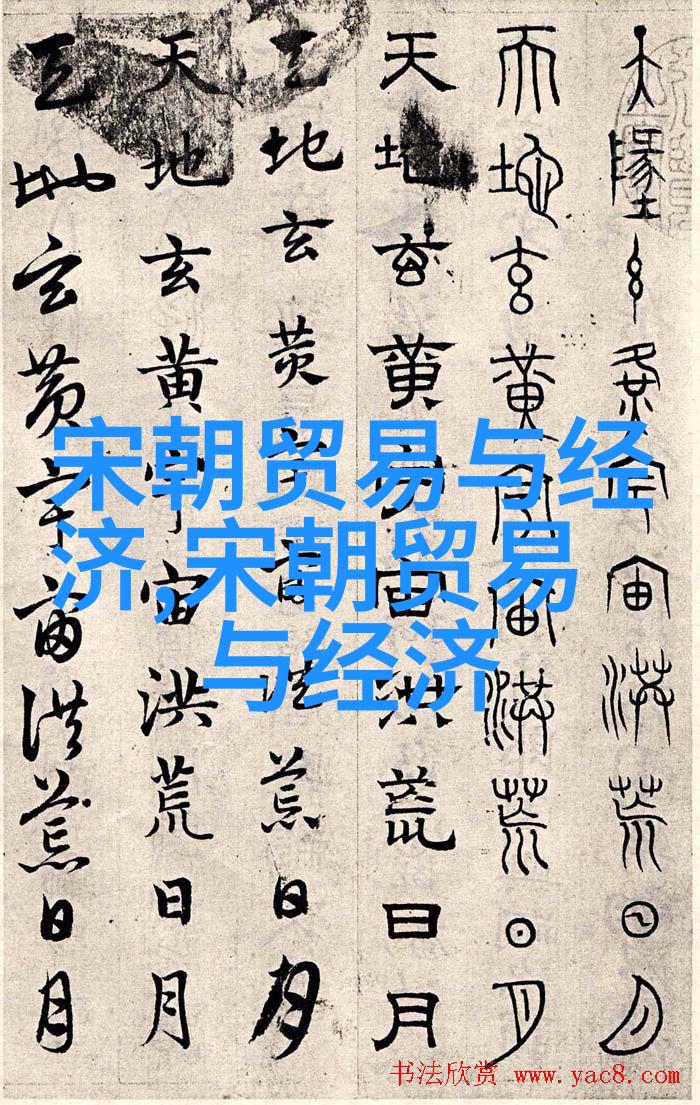 天地玄黄宇宙洪荒日月
天地玄黄宇宙洪荒日月
天地玄黄宇宙洪荒日月
天地玄黄宇宙洪荒日月
天地玄黄宇宙洪荒日月
天地玄黄宇宙洪荒日月
宋朝贸易与经
济,宋朝贸易
与经济
书法欣赏 www.yac8.com